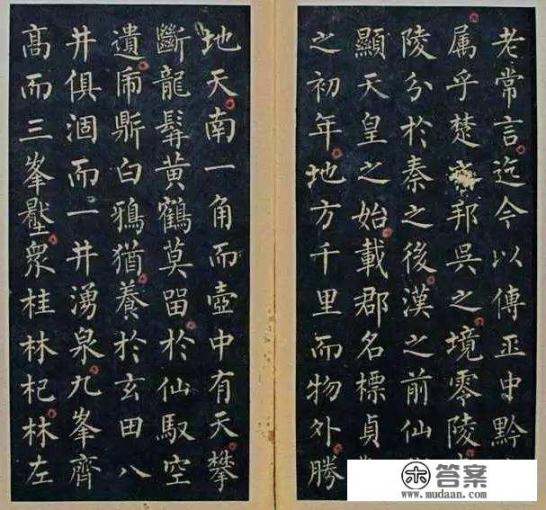 老常言迄今以傳中黔
属乎楚邦吳之境零陵
陵分於秦之後漢之前仙
顯天皇之始載郡名標貞
之初年地方千里而物外勝
地天南一角而壺中有天攀
斷龍髯黃鶴莫留於仙馭空
遺鼎白鴉猶養於玄田八
井俱涸而一井湧泉九峯齊
高而三峯壓衆桂林杞林左
答案
www.mudaan.com